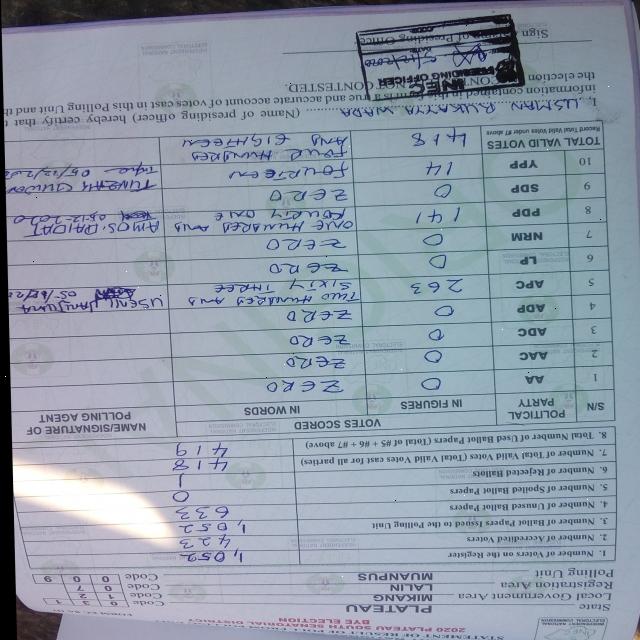 STATEMENT OF RESULT OF POLL FROM
2020 PLATEAU SOUTH SENATORIAL DISTRICT
BYE ELECTION
State PLATEAU Code 3 1
Local Government Area MIKANG Code 1 2
Registration Area LALIN Code 0 7
Polling Unit MUANPUS Code 0 0 9
1. Number of Voters on the Register 1,052
2. Number of Accredited Voters 423
3. Number of Ballot Papers Issued to the Polling Unit 1,052
4. Number of Unused Ballot Papers 633
5. Number of Spoiled Ballot Papers 0
6. Number of Rejected Ballots 1
7. Number of Total Valid Votes (Total Valid Votes cast for all parties) 418
8. Total Number of Used Ballot Papers (Total of #5 + #6 + #7 above) 419
S/N POLITICAL PARTY VOTES SCORED NAME/SIGNATURE OF POLLING AGENT
IN FIGURES IN WORDS
1 AA 0 ZERO
2 AAC 0 ZERO
3 ADC 0 ZERO
4 ADP 0 ZERO
5 APC 263 TWO HUNDRED AND SIXTY THREE
6 LP 0 ZERO
7 NRM 0 ZERO
8 PDP 141 ONE HUNDRED AND FOURTY ONE AMOS DAIDAT 05-12-2020
9 SDP 0 ZERO
10 YPP 14 FOURTEEN
TOTAL VALID VOTES 418 FOUR HUNDRED AND EIGHTEEN
Record Total Valid Votes under above
I, USMAN RUKAYYA WADA (Name of presiding officer) hereby certify that
information contained in this is a true and accurate account of votes cast in this Polling Unit and
the election CONTESTED/NOT CONTESTED.
Sign
INEC
PRESIDING OFFICER